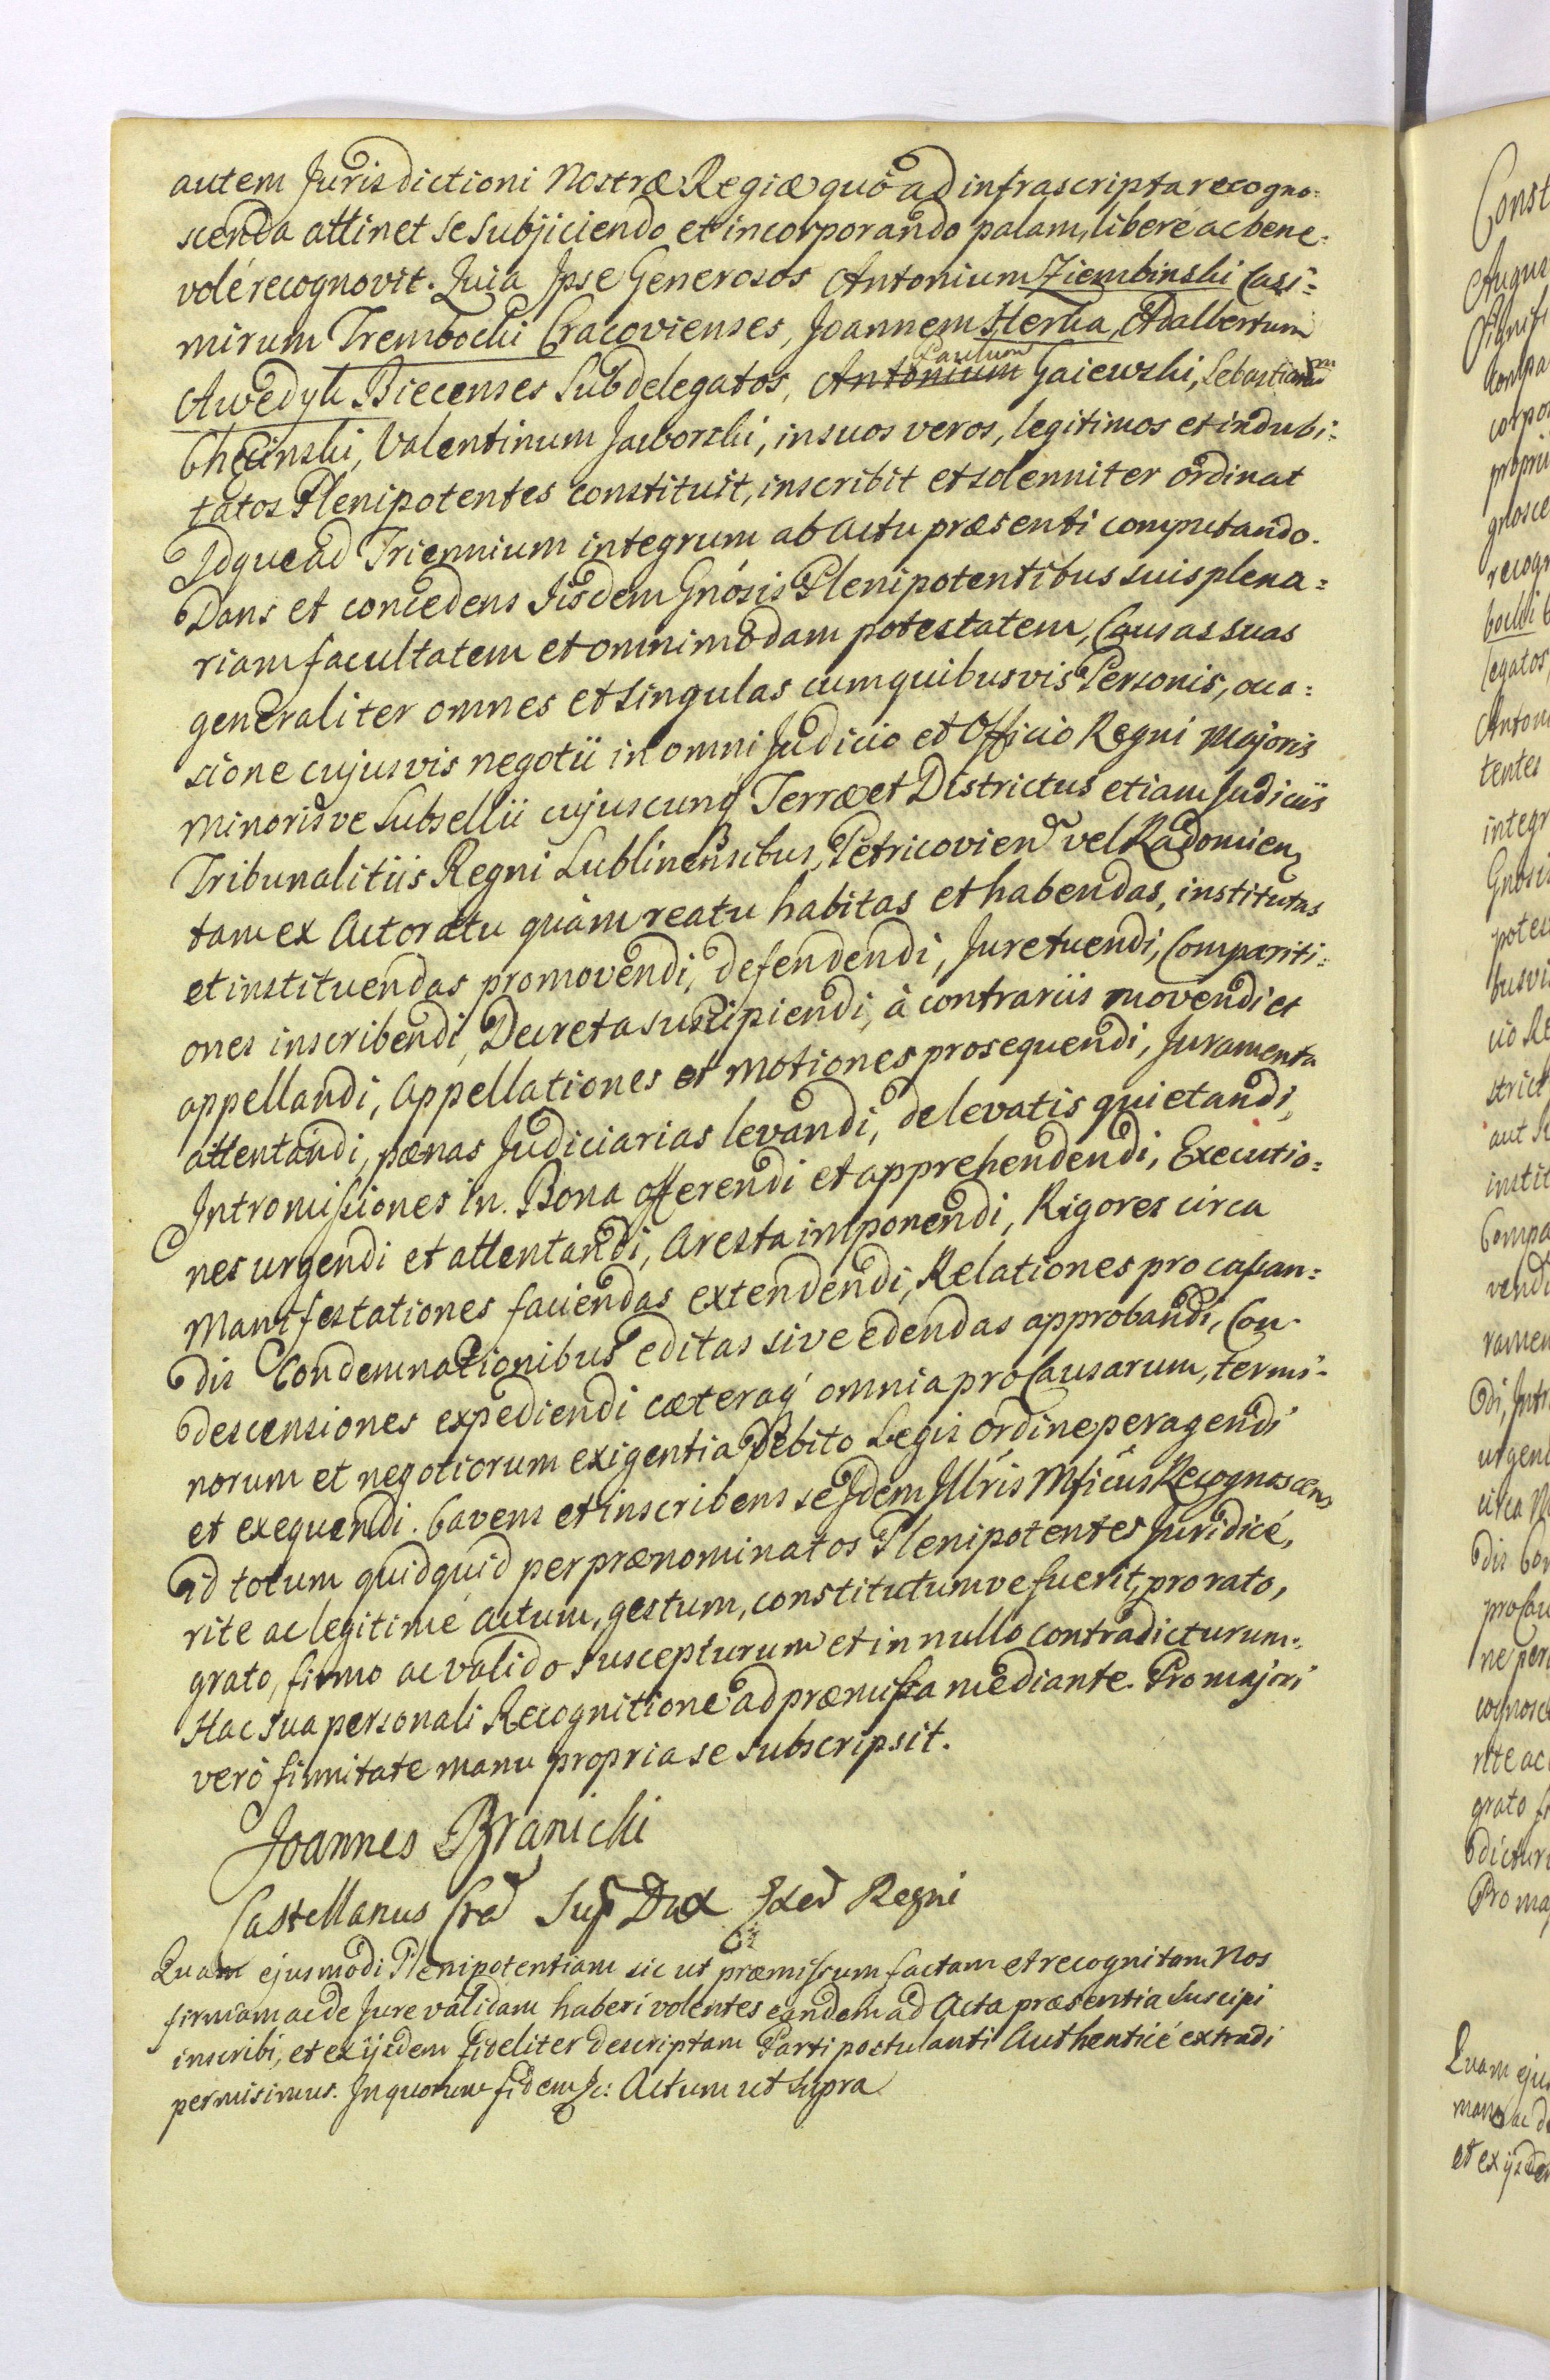 autem Jurisdictioni Nostræ Regiæ quò ad infrascripta recogno=
scenda attinet se subjiciendo et incorporando palam, liberé ac bene=
volé recognovit. Quia Ipse Generosos Antonium Ziembinski Casi=
mirum Trembocki Cracovienses, Joannem Herka, Adalbertum
Awedyk Biecenses Subdelegatos, Antonium Paulum Gaiewski, Sebastianum
Chęcinski, Valentinum Jaworski, in suos veros, legitimos et indubi=
tatos Plenipotentes constituit, inscribit et solenniter ordinat
Idque ad Triennium integrum ab actu præsenti computando.
Dans et concedens Iisdem Gnósis Plenipotentibus suis plena=
riam facultatem et omnimodam potestatem, Causas suas
generaliter omnes et singulas cum quibusvis Personis, occa=
sione cujusvis negotii in omni Judicio et Officio Regni Majoris
Minorisve Subsellii cujuscunq Terræ et Districtus etiam Judiciis
Tribunalitiis Regni Lublinensibus, Petricovien vel Radomien
tam ex Actoratu quàm reatu habitas et habendas, institutas
et instituendas promovendi, defendendi, Jure tuendi, Compariti=
ones inscribendi, Decreta suscipiendi, à contrariis movendi et
appellandi, Appellationes et Motiones prosequendi, Juramenta
attentandi, pænas Judiciarias levandi, de levatis quietandi,
Intromissiones in Bona offerendi et apprehendendi, Executio=
nes urgendi et attentandi, Aresta imponendi, Rigores circa
Manifestationes faciendas extendendi, Relationes pro cassan=
dis Condemnationibus editas sive edendas approbandi, Con-
descensiones expediendi cæteraq́ omnia pro Causarum, termi-
norum et negotiorum exigentia Debito Legis ordine peragendi
et exequendi. Cavens et inscribens se Idem Illris Mficus Recognoscens
id totum quidquid per prænominatos Plenipotentes Juridicé,
rite ac legitimé actum, gestum, constitutumve fuerit, pro rato,
grato, firmo ac valido suscepturum et in nullo contradicturum.
Hac sua personali Recognitione ad præmissa mediante. Pro majori
verò firmitate manu propria se subscripsit.
Joannes Branicki
Castellanus Sup Dux Exer Regni
Quam ejusmodi Plenipotentiam sic ut præmissum factam et recognitam Nos
firmam ac de Jure validam haberi volentes eandem ad Acta præsentia suscipi
inscribi, et ex ijsdem fideliter descriptam Parti postulanti Authenticé extradi
permisimus. In quorum fidem &c: Actum ut supra